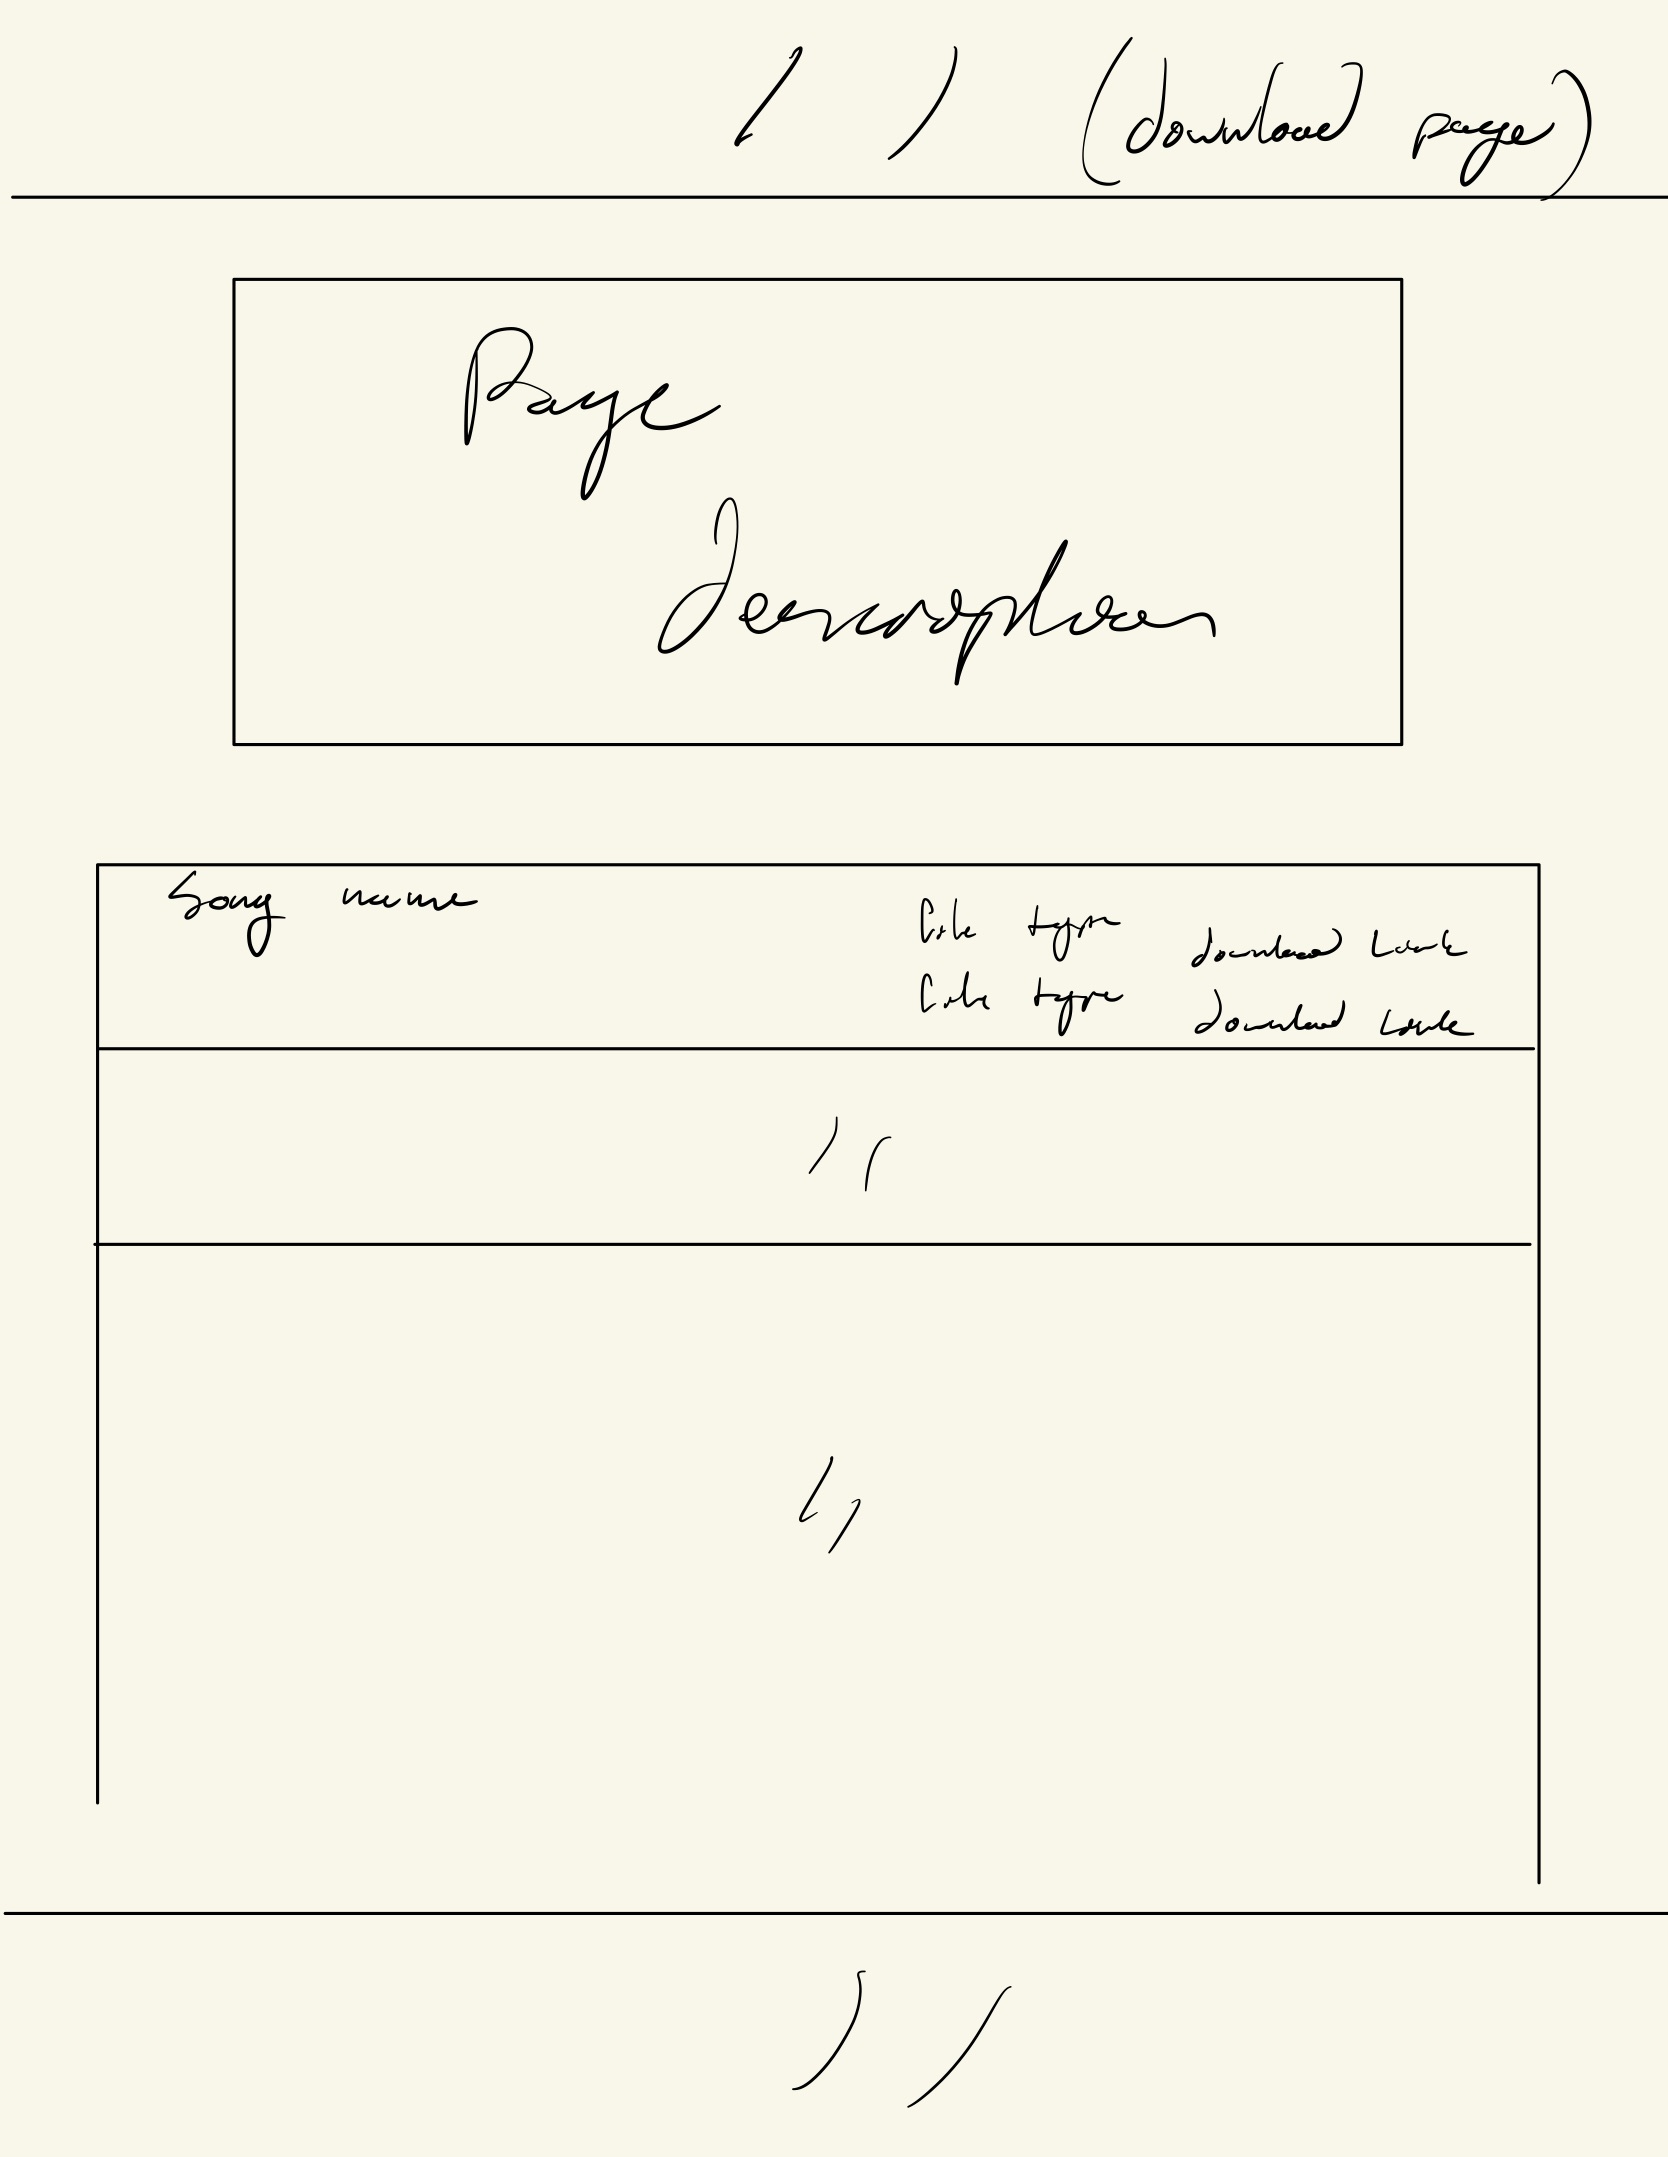 (download page)
Page
Description
Song name
file type download link
file type download link